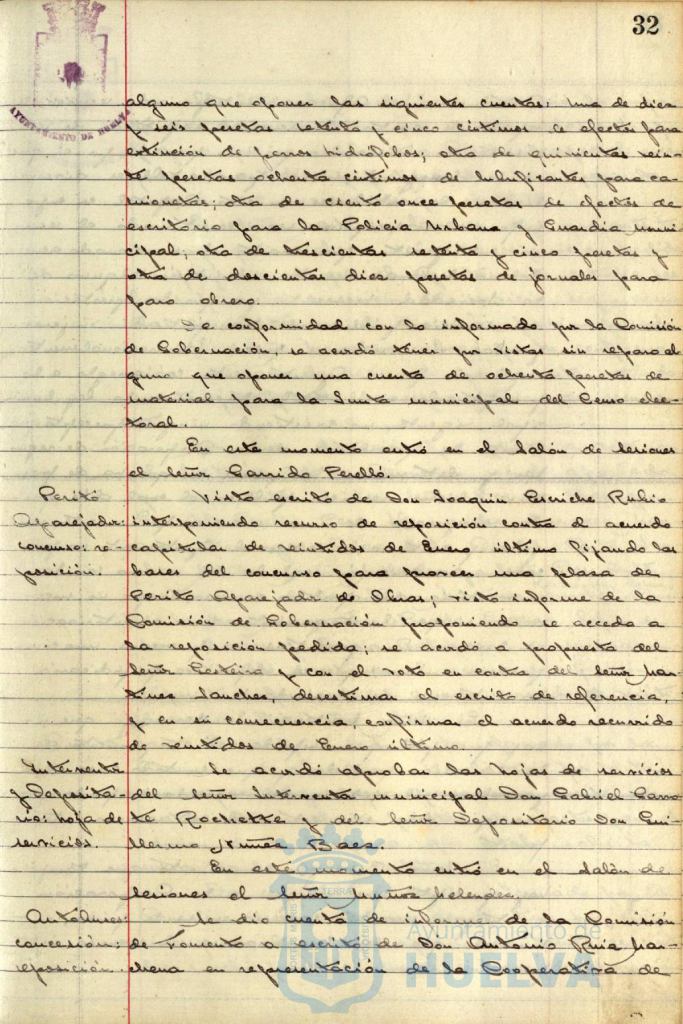 32
AYUNTAMIENTO DE HUELVA
alguno que oponer las siguientes cuentas: una de diez
y seis pesetas setenta y cinco céntimos de efectos para
extinción de perros hidrófobos; otra de quinientas vein-
te pesetas ochenta céntimos de lubrificantes para ca-
mionetas; otra de ciento once pesetas de efectos de
escritorio para la Policía Urbana y Guardia muni-
cipal; otra de trescientas setenta y cinco pesetas y
otra de doscientas diez pesetas de jornales para
paro obrero.
De conformidad con lo informado por la Comisión
de Gobernación, se acordó tener por vistas sin reparo al-
guno que oponer una cuenta de ochenta pesetas de
material para la Junta municipal del Censo elec-
toral.
En este momento entró en el Salón de Sesiones
el Señor Garrido Perelló.
Perito
Aparejador:
concurso: re-
posición.
Visto escrito de Don Joaquin Escriche Rubio
interponiendo recurso de reposición contra el acuerdo
capitular de veintidos de Enero último fijando las
bases del concurso para proveer una plaza de
Perito Aparejador de Obras; visto informe de la
Comisión de Gobernación proponiendo se acceda a
la reposición pedida; se acordó a propuesta del
Señor y con el voto en contra del Señor Mar-
tinez Sanchez, desestimar el escrito de referencia,
y en su consecuencia, confirmar el acuerdo recurrido
de veintidos de Enero último.
Interventor
y Deposita-
rio: hoja de
servicios.
Se acordó aprobar las hojas de servicios
del Señor Interventor municipal Don Gabriel Garro-
te Rochette y del Señor Depositario Don Gui-
llermo Nuñez Baez.
En este momento entró en el Salón de
Sesiones el Señor Muñoz Melendez.
Autobuses:
concesión:
reposición.
Se dio cuenta de informe de la Comisión
de Fomento a escrito de Don Antonio Ruiz Mar-
chena en representación de la Cooperativa de
Ayuntamiento de
HUELVA